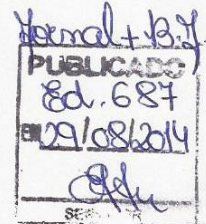 Jornal + B.J
PUBLICADO
Ed. 687
EM 29/08/2014